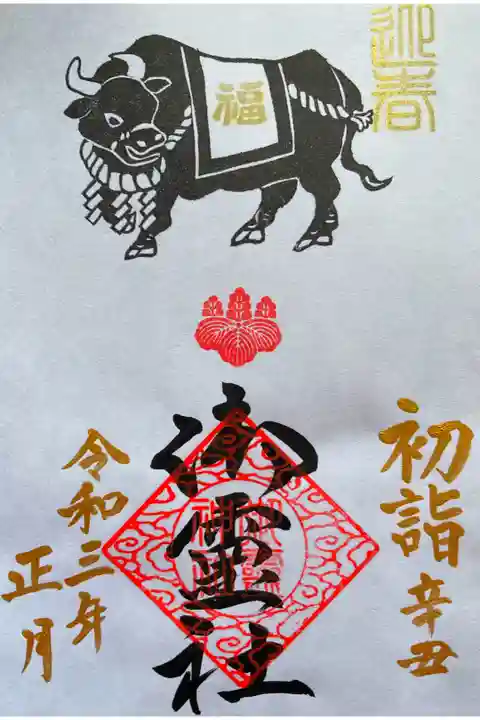 迎春
福
初詣 辛丑
御霊社
令和三年
正月